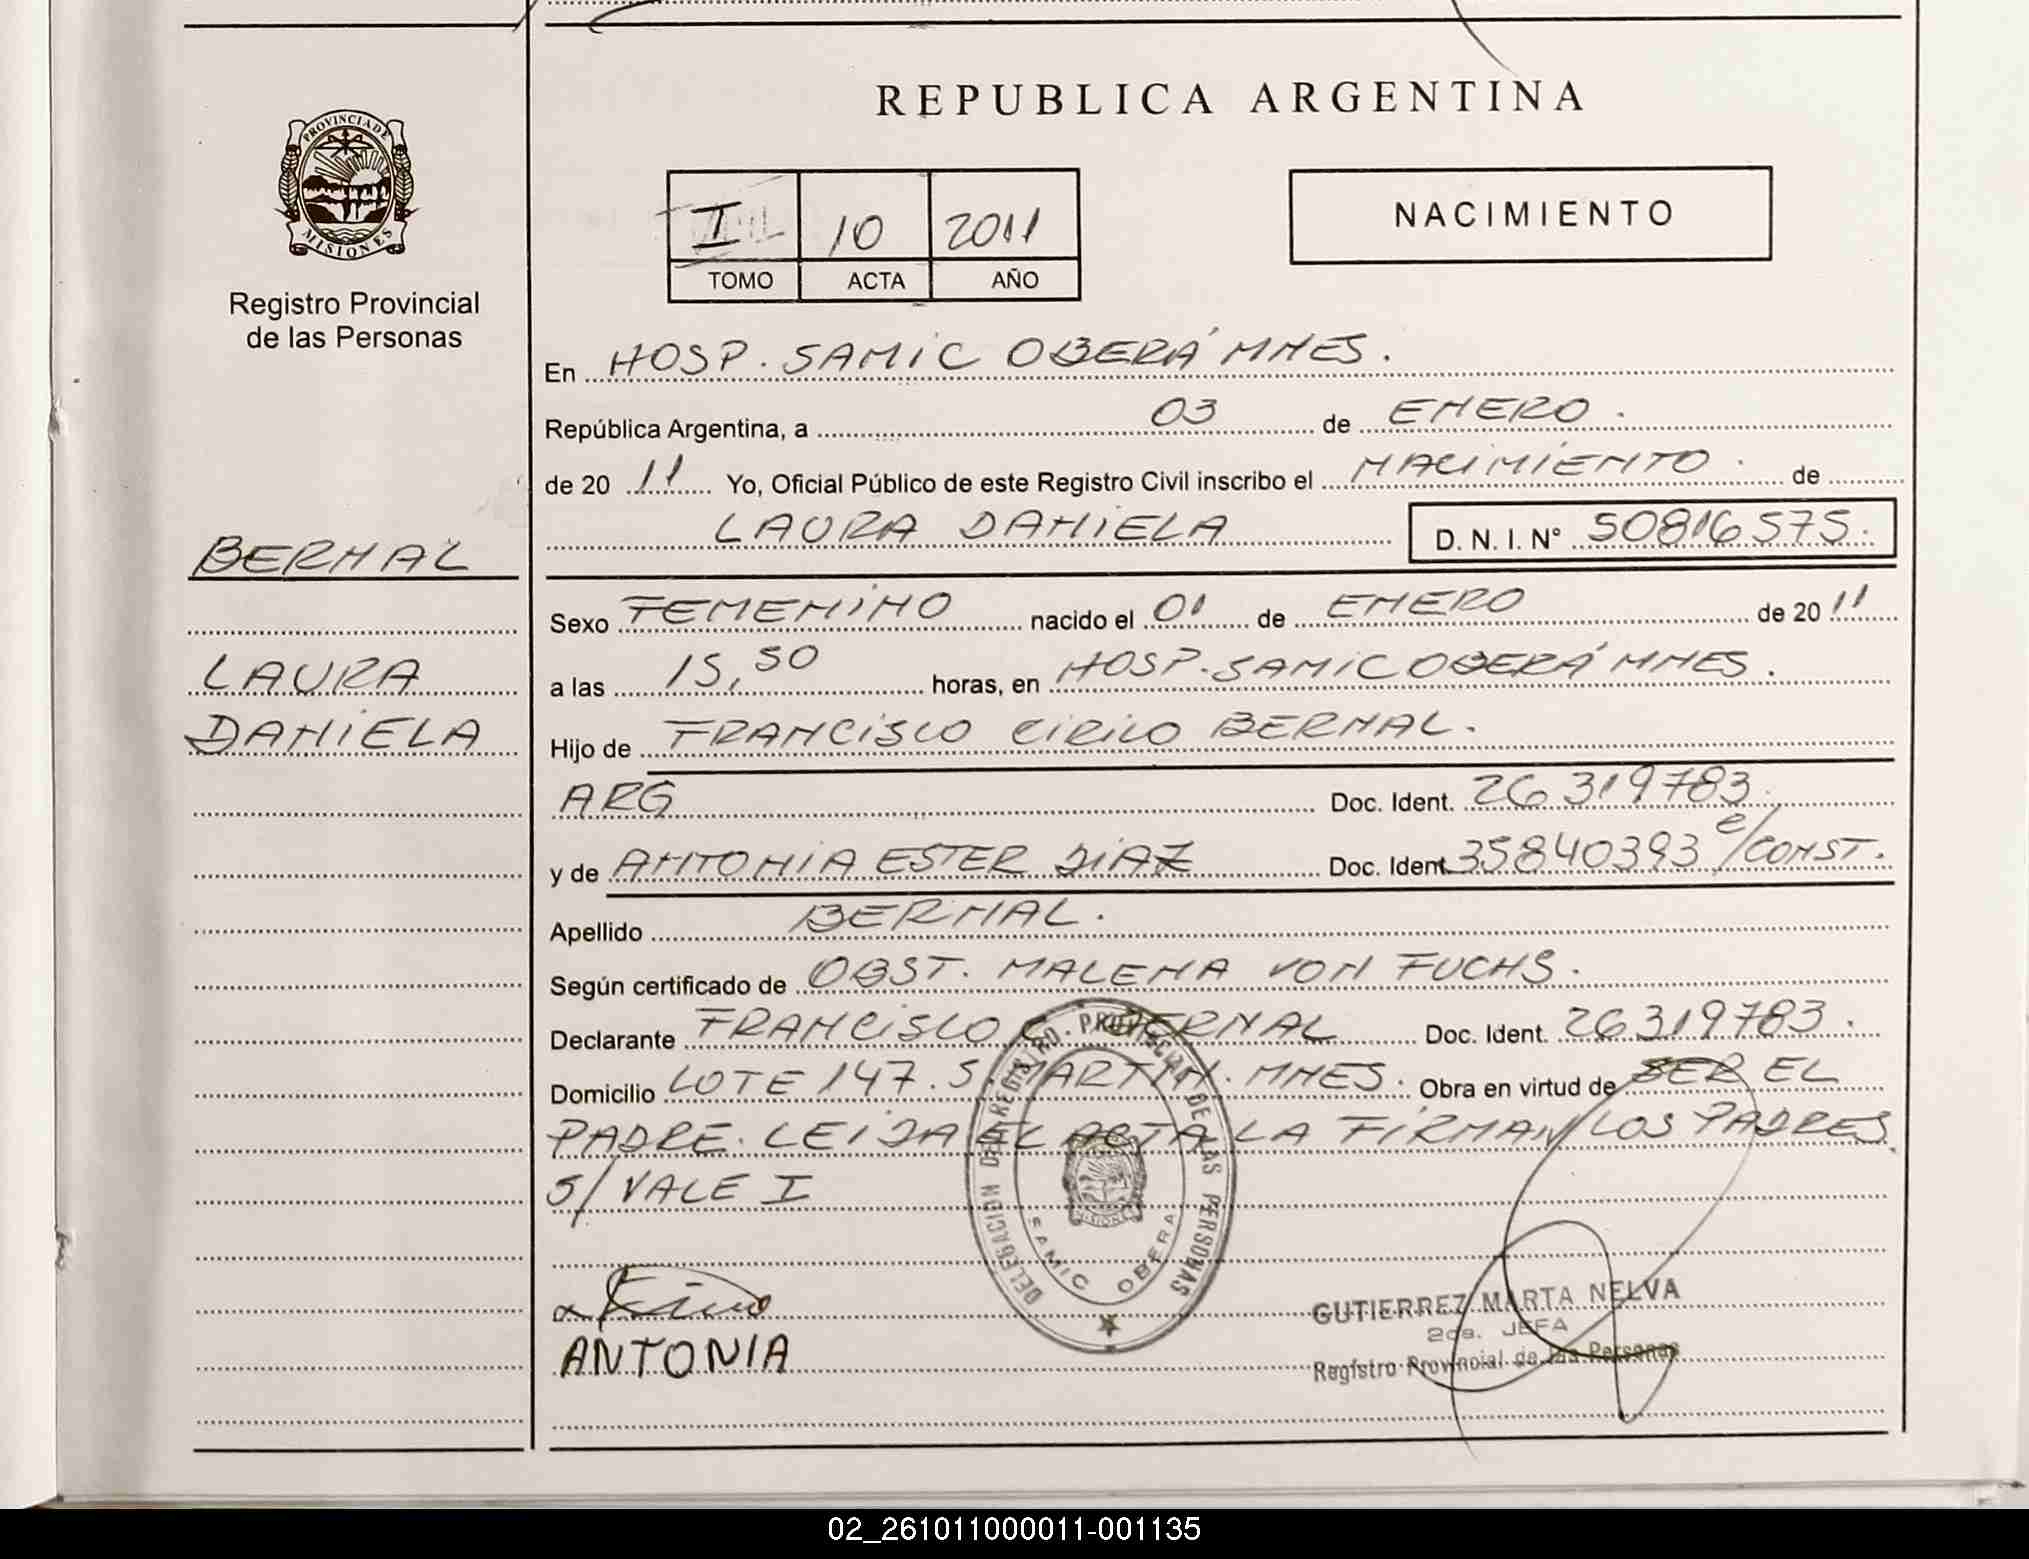 REPUBLICA ARGENTINA
PROVINCIA DE
MISIONES
Registro Provincial
de las Personas
I 10 2011
TOMO ACTA AÑO
NACIMIENTO
En HOSP. SAMIC OBERÁ MNES.
República Argentina, a 03 de ENERO.
de 20 11 Yo, Oficial Público de este Registro Civil inscribo el NACIMIENTO. de
LAURA DANIELA D. N. I. N° 50816575.
BERNAL
LAURA
DANIELA
Sexo FEMENINO nacido el 01 de ENERO de 20 11
a las 15,50 horas, en HOSP. SAMIC OBERÁ MNES.
Hijo de FRANCISCO CIRILO BERNAL.
ARG Doc. Ident. 26319783.
y de ANTONIA ESTER DIAZ Doc. Ident. 35840393 e/CONST.
Apellido BERNAL.
Según certificado de OBST. MALENA VON FUCHS.
Declarante FRANCISCO C. BERNAL Doc. Ident. 26319783.
Domicilio LOTE 147. S. MARTIN. MNES. Obra en virtud de SER EL
PADRE. LEIDA EL ACTA LA FIRMAN LOS PADRES.
S/ VALE I
DELEGACION DEL REGISTRO PROVINCIAL DE LAS PERSONAS
MISIONES
SAMIC OBERA
ANTONIA
GUTIERREZ MARTA NELVA
2da. JEFA
Registro Provincial de las Personas
02_261011000011-001135